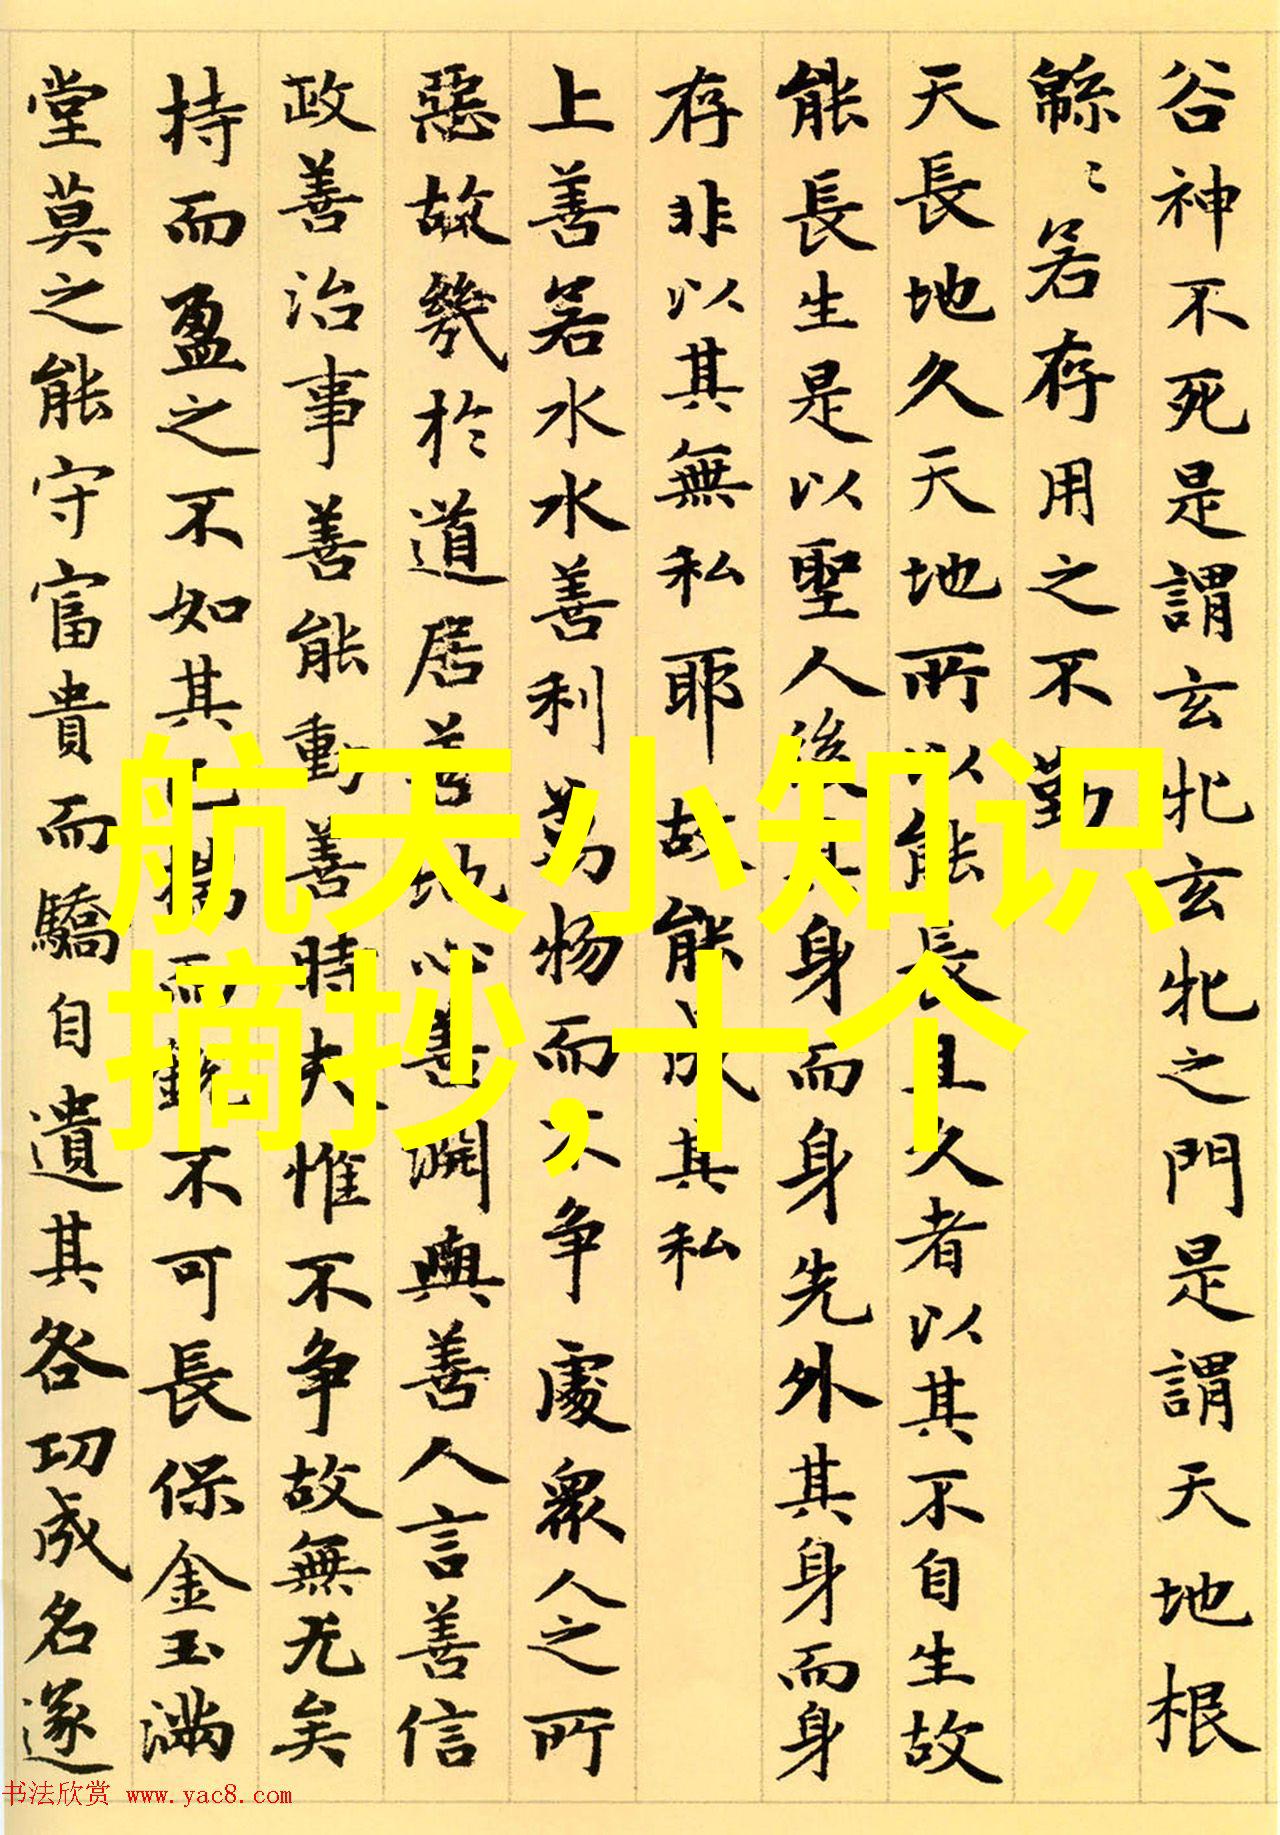 谷神不死是謂玄牝玄牝之門是謂天地根
緜〻若存用之不勤
天長地久天地所以能長且久者以其不自生故
能長生是以聖人後其身而身先外其身而身
存非以其無私耶故能成其私
上善若水水善利萬物而不争處衆人之所
惡故幾於道居善地心善淵與善人言善信
政善治事善能動善時夫惟不争故無尤矣
持而盈之不如其已揣而銳不可長保金玉滿
堂莫之能守富貴而驕自遺其咎功成名遂
航天小知识
摘抄,十个
书法欣赏 www.yac8.com